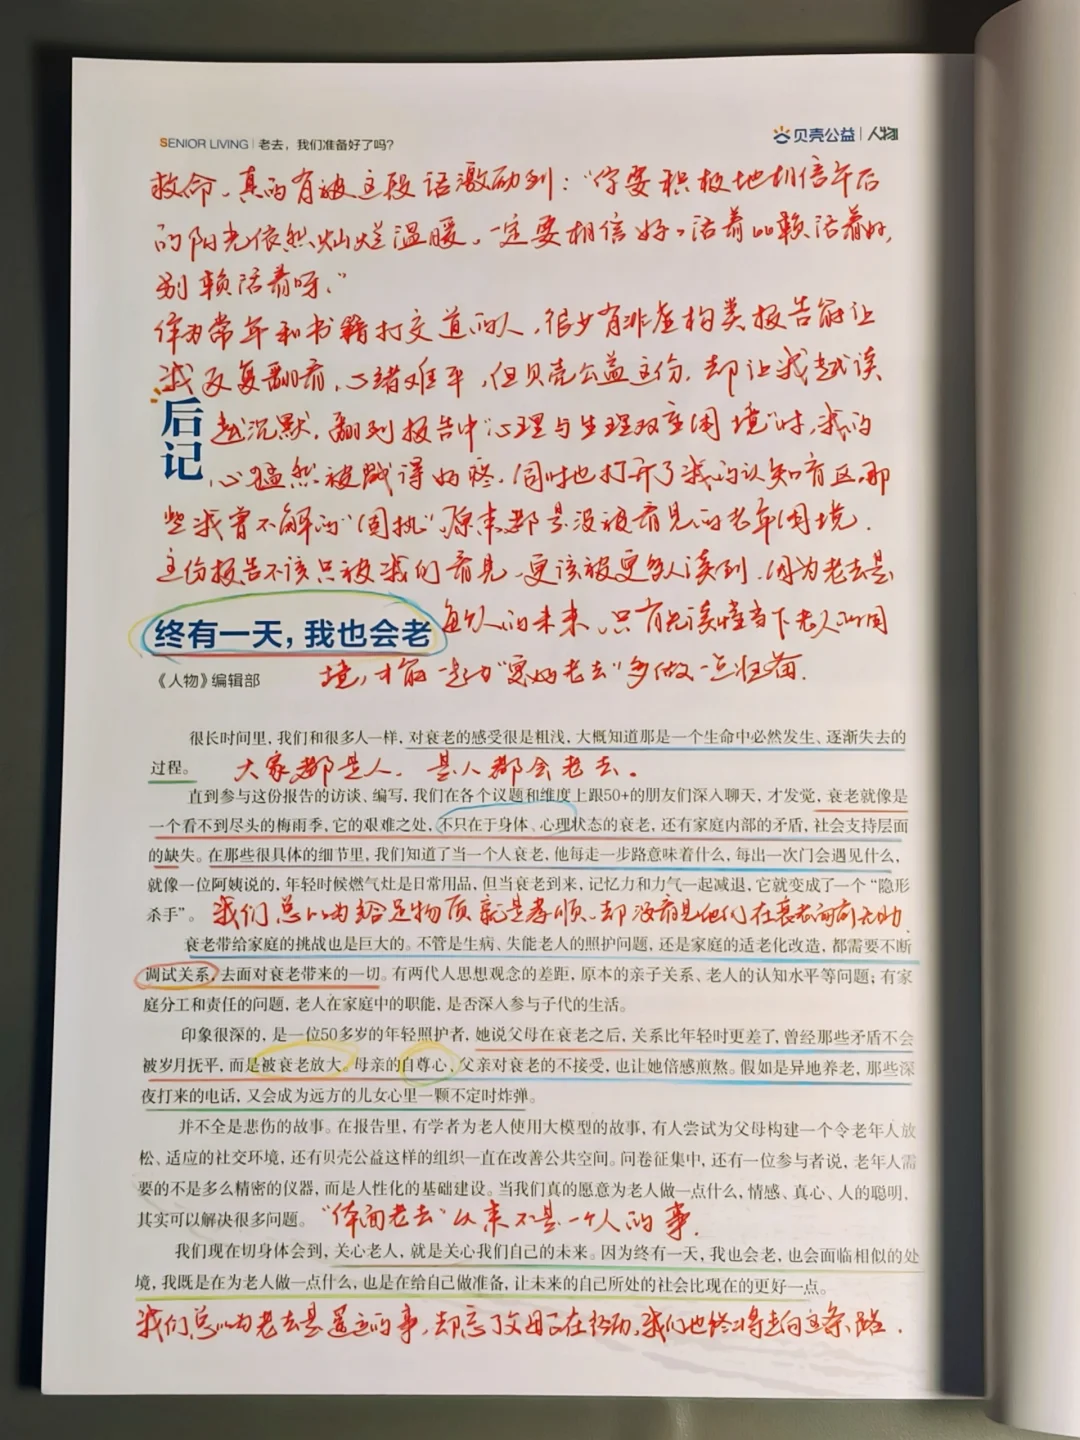 SENIOR LIVING | 老去，我们准备好了吗？
贝壳公益 | 人物
救命，真的有被这段话激励到：“你要积极地相信午后
的阳光依然灿烂温暖，一定要相信好好活着比赖活着好，
别赖活着呀。”
作为常年和书籍打交道的人，很少有非虚构类报告能让
我反复翻看，心绪难平，但贝壳公益这份，却让我越读
越沉默，翻到报告中“心理与生理双重困境”时，我的
心猛然被戳得的疼，同时也打开了我的认知盲区，那
些我曾不解的“固执”，原来都是没被看见的老年困境。
这份报告不该只被我们看见，更该被更多人读到，因为老去是
每个人的未来，只有先读懂当下老人的困
境，才能一起为“更好老去”多做一点准备。
后记
终有一天，我也会老
《人物》编辑部
很长时间里，我们和很多人一样，对衰老的感受很是粗浅，大概知道那是一个生命中必然发生、逐渐失去的
过程。
大家都是人，是人都会老去。
直到参与这份报告的访谈、编写，我们在各个议题和维度上跟50+的朋友们深入聊天，才发觉，衰老就像是
一个看不到尽头的梅雨季，它的艰难之处，不只在于身体、心理状态的衰老，还有家庭内部的矛盾，社会支持层面
的缺失。在那些很具体的细节里，我们知道了当一个人衰老，他每走一步路意味着什么，每出一次门会遇见什么，
就像一位阿姨说的，年轻时候燃气灶是日常用品，但当衰老到来，记忆力和力气一起减退，它就变成了一个“隐形
杀手”。
我们总以为给足物质就是孝顺，却没看见他们在衰老面前无助
衰老带给家庭的挑战也是巨大的。不管是生病、失能老人的照护问题，还是家庭的适老化改造，都需要不断
调试关系，去面对衰老带来的一切。有两代人思想观念的差距，原本的亲子关系、老人的认知水平等问题；有家
庭分工和责任的问题，老人在家庭中的职能，是否深入参与子代的生活。
印象很深的，是一位50多岁的年轻照护者，她说父母在衰老之后，关系比年轻时更差了，曾经那些矛盾不会
被岁月抚平，而是被衰老放大。母亲的自尊心、父亲对衰老的不接受，也让她倍感煎熬。假如是异地养老，那些深
夜打来的电话，又会成为远方的儿女心里一颗不定时炸弹。
并不全是悲伤的故事。在报告里，有学者为老人使用大模型的故事，有人尝试为父母构建一个令老年人放
松、适应的社交环境，还有贝壳公益这样的组织一直在改善公共空间。问卷征集中，还有一位参与者说，老年人需
要的不是多么精密的仪器，而是人性化的基础建设。当我们真的愿意为老人做一点什么，情感、真心、人的聪明，
其实可以解决很多问题。
“体面老去”从来不是一个人的事。
我们现在切身体会到，关心老人，就是关心我们自己的未来。因为终有一天，我也会老，也会面临相似的处
境，我既是在为老人做一点什么，也是在给自己做准备，让未来的自己所处的社会比现在的更好一点。
我们总以为老去是遥远的事，却忘了父母正在经历，我们也终将走向这条路。